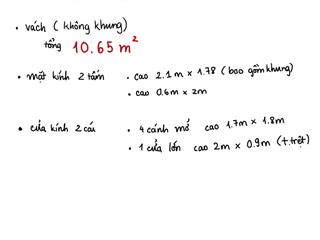 • vách ( không khung)
tổng 10.65 m²
• mặt kính 2 tấm • cao 2.1 m x 1.78 ( bao gồm khung)
• cao 0.6m x 2m
• cửa kính 2 cái • 4 cánh mở cao 1.7m x 1.8m
• 1 cửa lớn cao 2m x 0.9m (t.trệt)